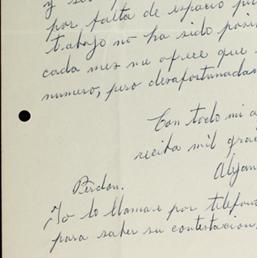 por falta de espacio
trabajo no ha sido
cada mes me ofrece que
numero, pero desafortunadam
Con todo mi a
reciba mil gra
Perdon.
Yo lo llamare por telefon
para saber su contestacion.